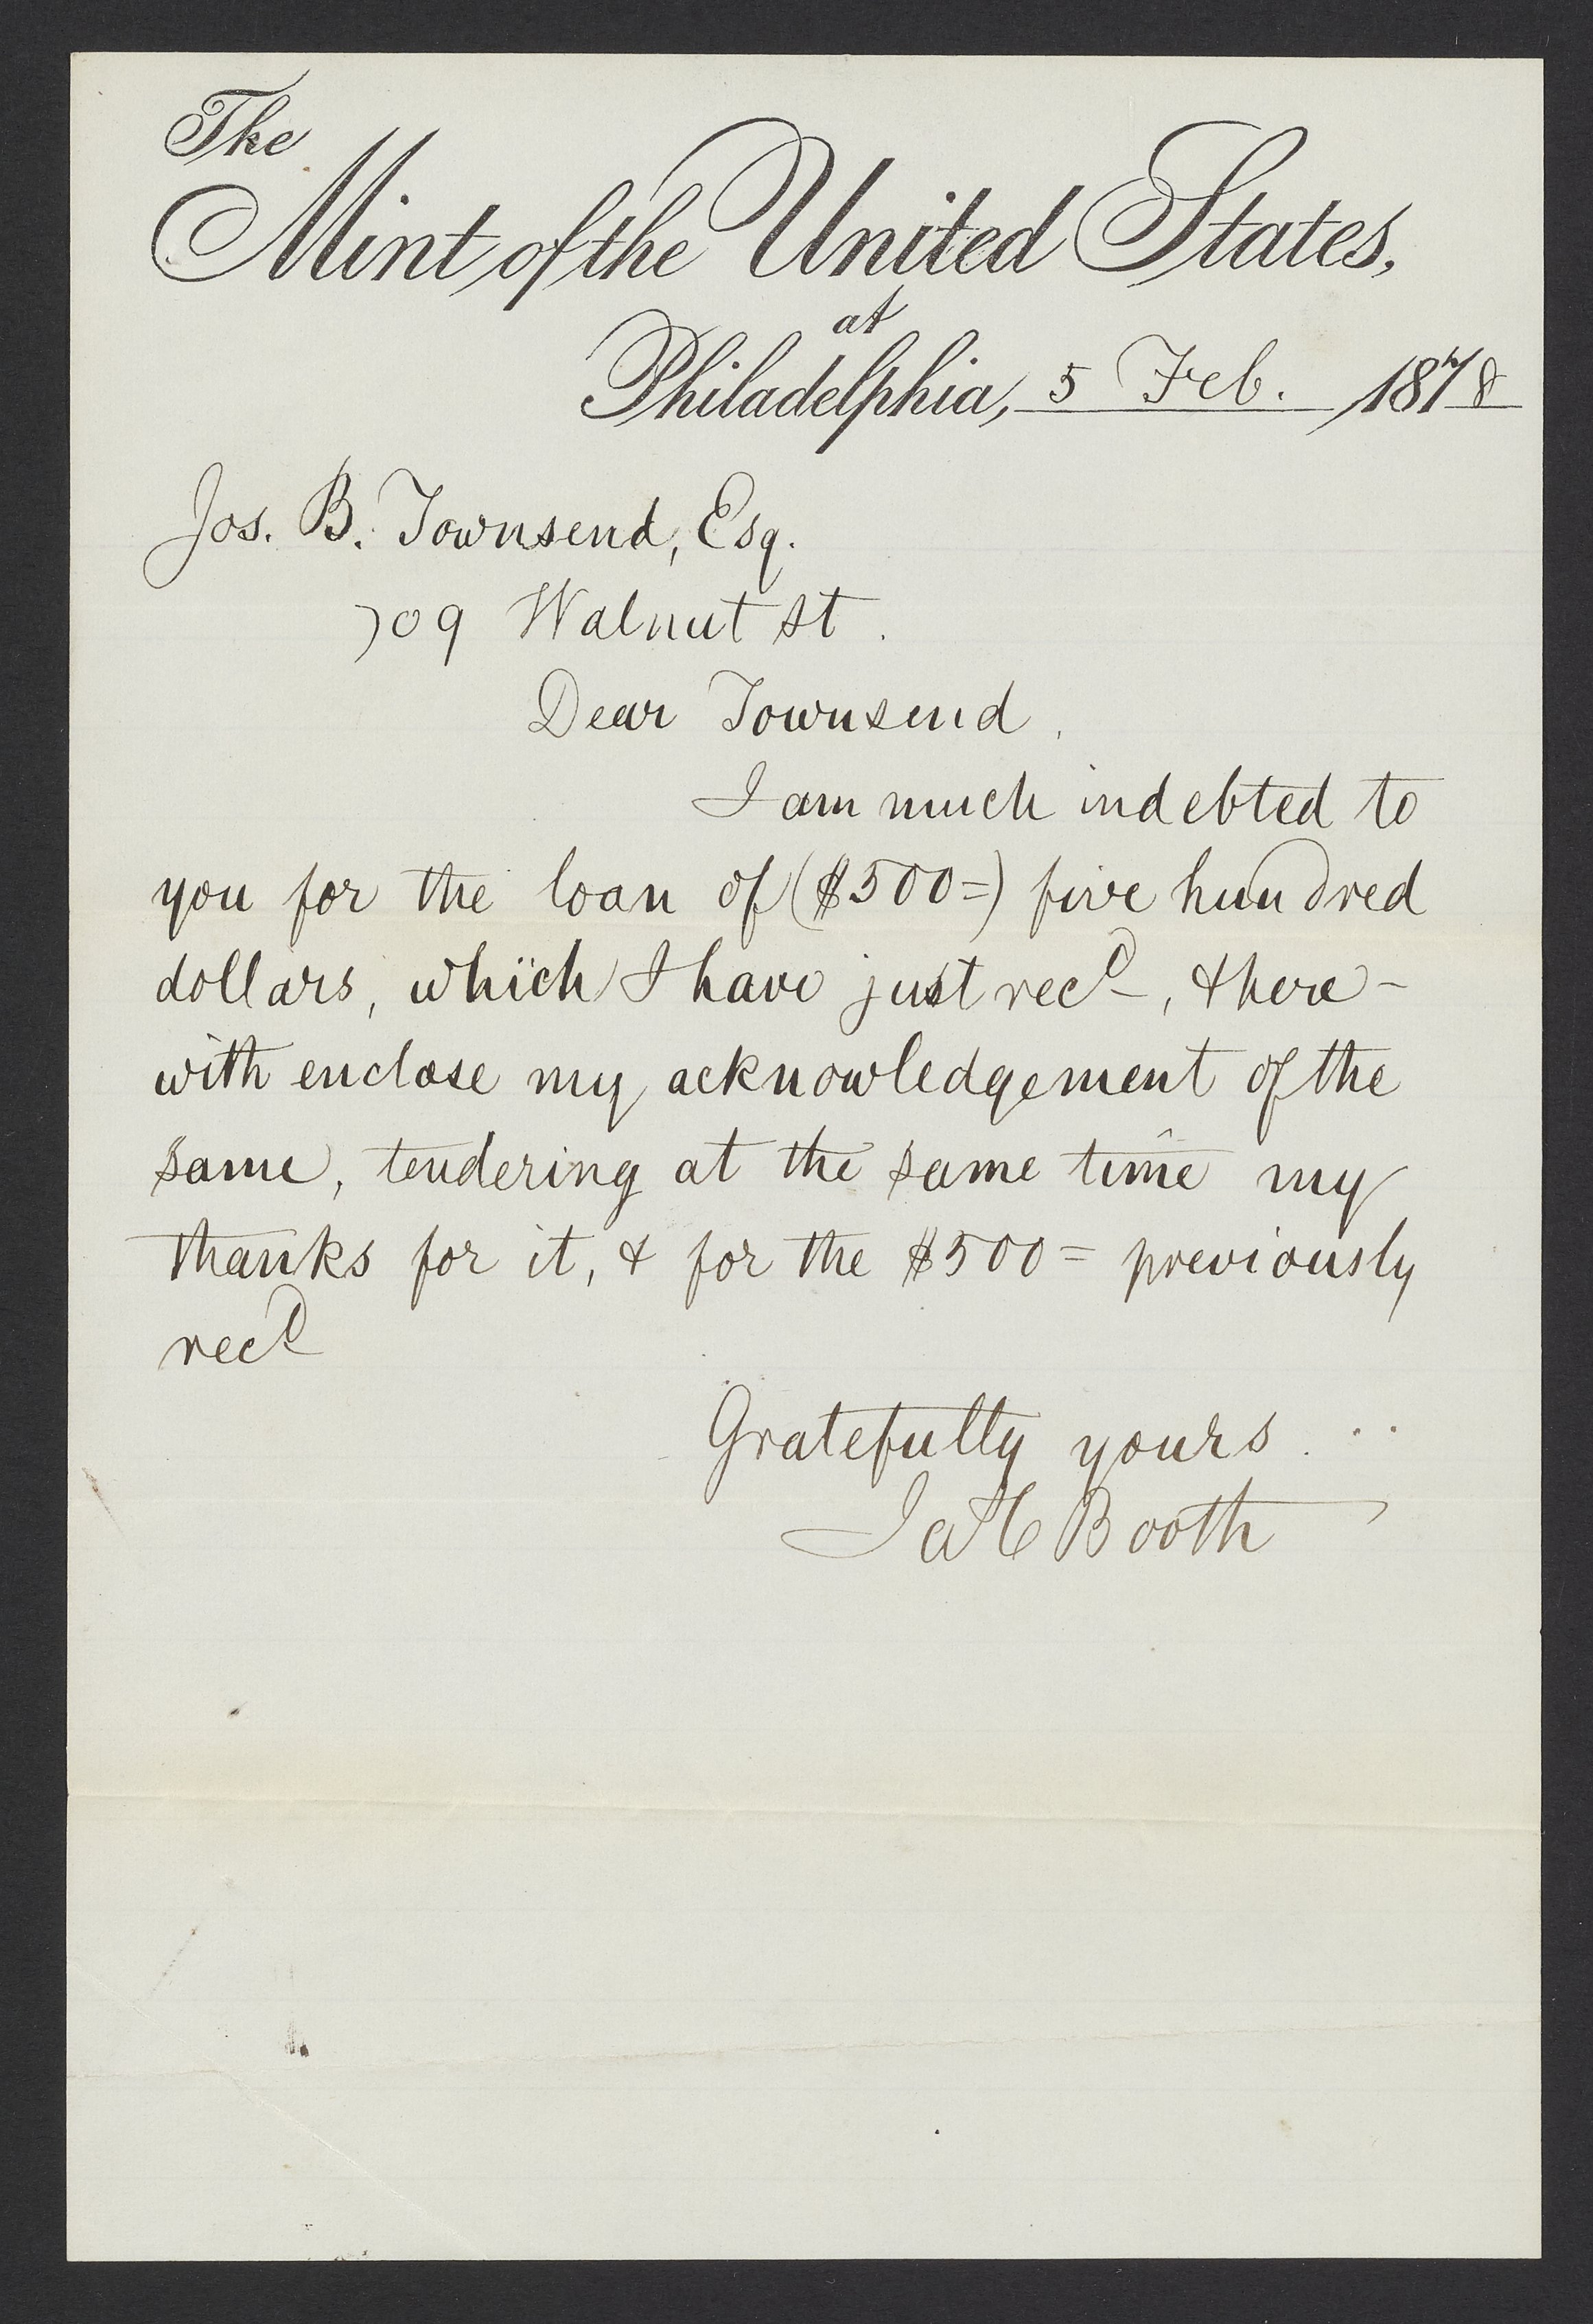 The
Mint of the United States,
at
Philadelphia, 5 Feb. 1878
Jos. B. Townsend, Esq.
709 Walnut st.
Dear Townsend,
I am much indebted to
you for the loan of ($500=) five hundred
dollars, which I have just recd, & here-
with enclose my acknowledgement of the
same, tendering at the same time my
thanks for it, & for the $500= previously
recd
Gratefully yours.
Ja C Booth